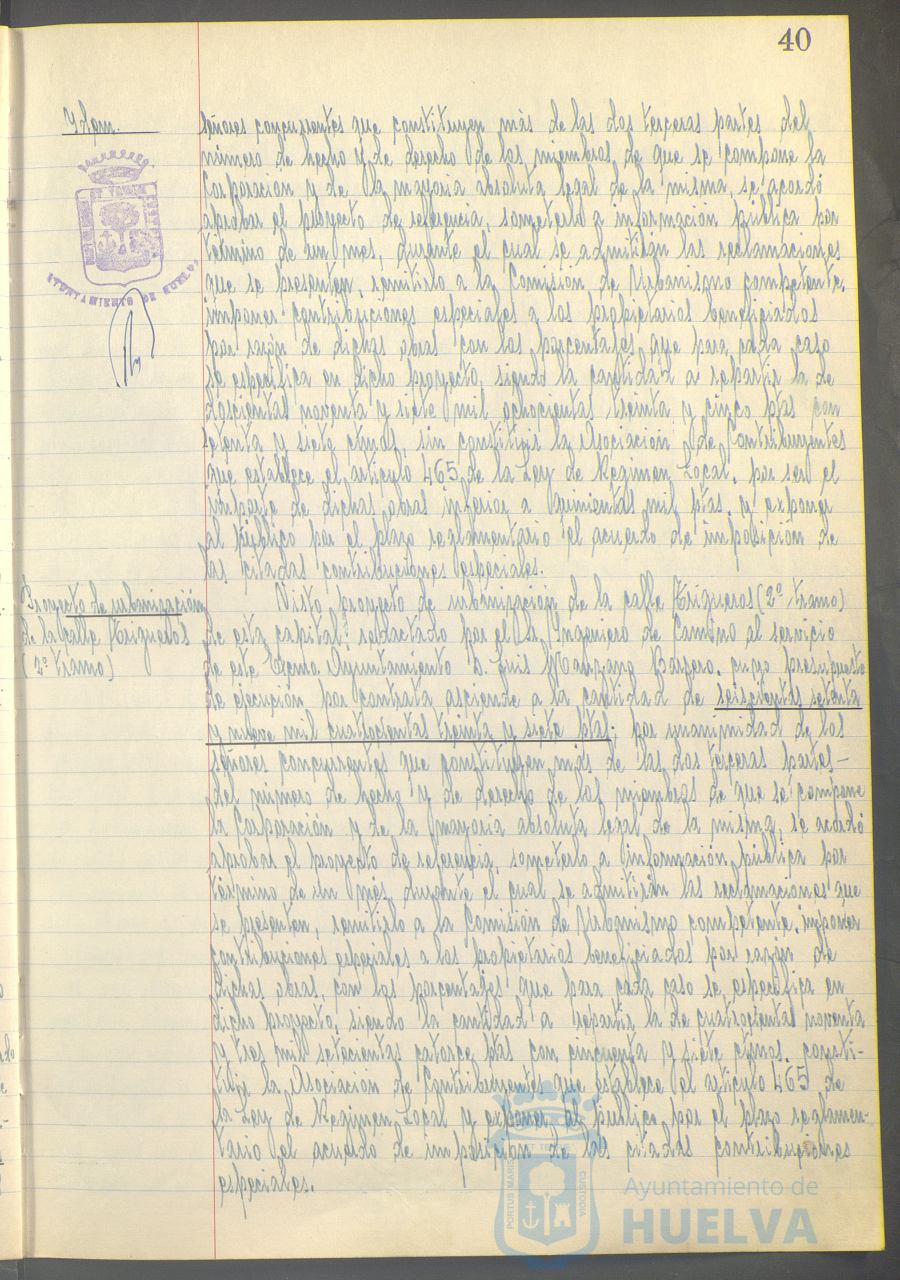 40
Ydem.
señores concurrentes que constituyen más de las dos terceras partes del
número de hecho y de derecho de los miembros de que se compone la
Corporación y de la mayoría absoluta legal de la misma, se acordó
aprobar el proyecto de referencia, someterlo a información pública por
término de un mes, durante el cual se admitirán las reclamaciones
que se presenten, remitirlo a la Comisión de Urbanismo competente,
imponer contribuciones especiales a los propietarios beneficiados
por razón de dichas obras con los porcentajes que para cada caso
se especifica en dicho proyecto, siendo la cantidad a repartir la de
doscientas noventa y siete mil ochocientas treinta y cinco ptas con
setenta y siete ctmos, sin constituir la Asociación de Contribuyentes
que establece el artículo 465 de la Ley de Régimen Local, por ser el
importe de dichas obras inferior a quinientas mil ptas. y exponer
al Público por el plazo reglamentario el acuerdo de imposición de
las citadas contribuciones especiales.
Proyecto de urbanización
de la calle Trigueros
(2º tramo)
Visto proyecto de urbanización de la calle Trigueros (2º tramo)
de esta capital, redactado por el Sr. Ingeniero de Camino al servicio
de este Excmo Ayuntamiento D. Luis Manzano cuyo presupuesto
de ejecución por contrata asciende a la cantidad de seiscientas setenta
y nueve mil cuatrocientas treinta y siete ptas; por unanimidad de los
señores concurrentes que constituyen más de las dos terceras partes-
del número de hecho y de derecho de los miembros de que se compone
la Corporación y de la mayoría absoluta legal de la misma, se acordó
aprobar el proyecto de referencia, someterlo a información pública por
término de un mes durante el cual se admitirán las reclamaciones que
se presenten, remitirlo a la Comisión de Urbanismo competente, imponer
contribuciones especiales a los propietarios beneficiados por razón de
dichas obras, con los porcentajes que para cada caso se especifica en
dicho proyecto, siendo la cantidad a repartir la de cuatrocientas noventa
y tres mil setecientas catorce ptas con cincuenta y siete ctmos. consti-
tuir la Asociación de Contribuyentes que establece el artículo 465 de
la Ley de Régimen Local y exponer al público por el plazo reglamen-
tario el acuerdo de imposición de las citadas contribuciones
especiales.
AYUNTAMIENTO DE HUELVA
PORTUS MARIS ET TERRAE CUSTODIA
Ayuntamiento de
HUELVA